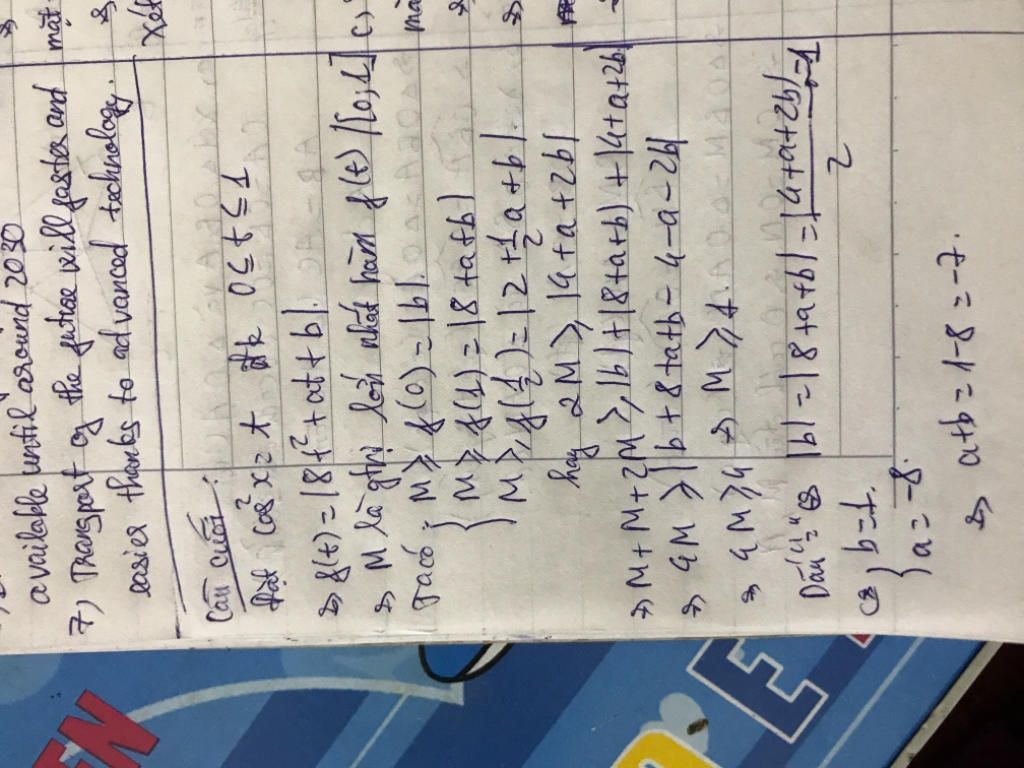 available until around 2030
7) Transport of the future will faster and
easier thanks to advanced technology.
Câu cuối:
Đặt cos²x = t đk 0 ≤ t ≤ 1
⇒ f(t) = |8t² + at + b|.
⇒ M là gtrị lớn nhất hàm f(t) / [0,1]
Ta có: { M ≥ f(0) = |b|.
M ≥ f(1) = |8 + a + b|
M ≥ f(1/2) = |2 + 1/2 a + b|.
hay 2M ≥ |4 + a + 2b|
⇒ M + M + 2M ≥ |b| + |8 + a + b| + |4 + a + 2b|
⇒ 4M ≥ |b + 8 + a + b - 4 - a - 2b|
⇒ 4M ≥ 4 ⇒ M ≥ 1.
Dấu "=" ⇔ |b| = |8 + a + b| = |4 + a + 2b|/2 = 1
⇔ { b = 1.
a = -8.
⇒ a + b = 1 - 8 = -7.
Xét
c)
EN
E